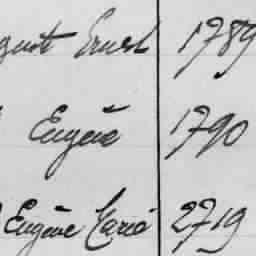 Ernest 1789
Eugène 1790
Eugène Marie 2719